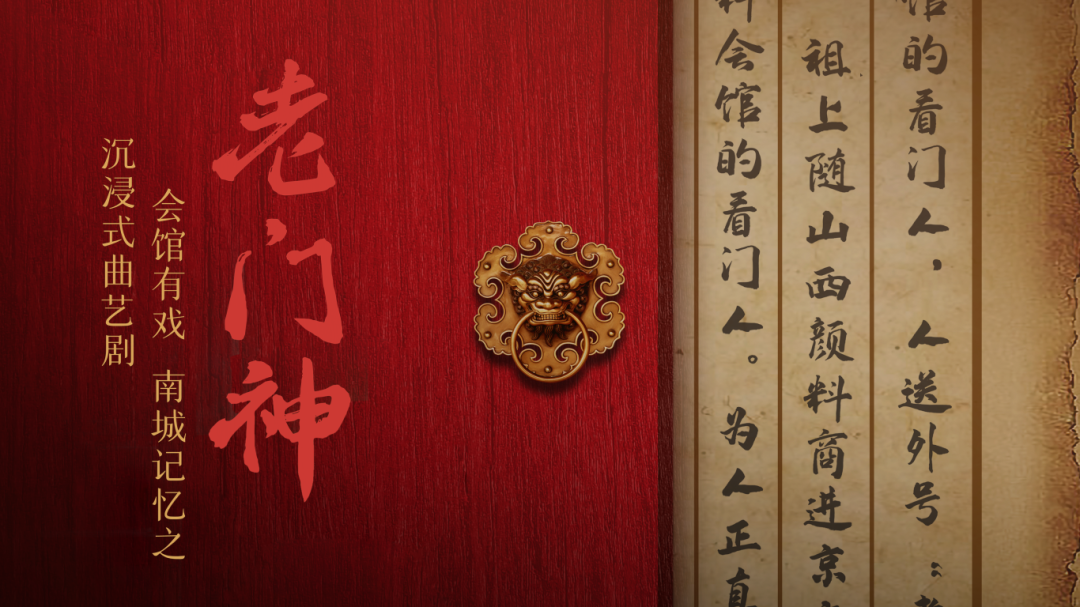 馆的看门人，人送外号：
祖上随山西颜料商进京
料会馆的看门人。为人正直
老门神
会馆有戏 南城记忆之
沉浸式曲艺剧